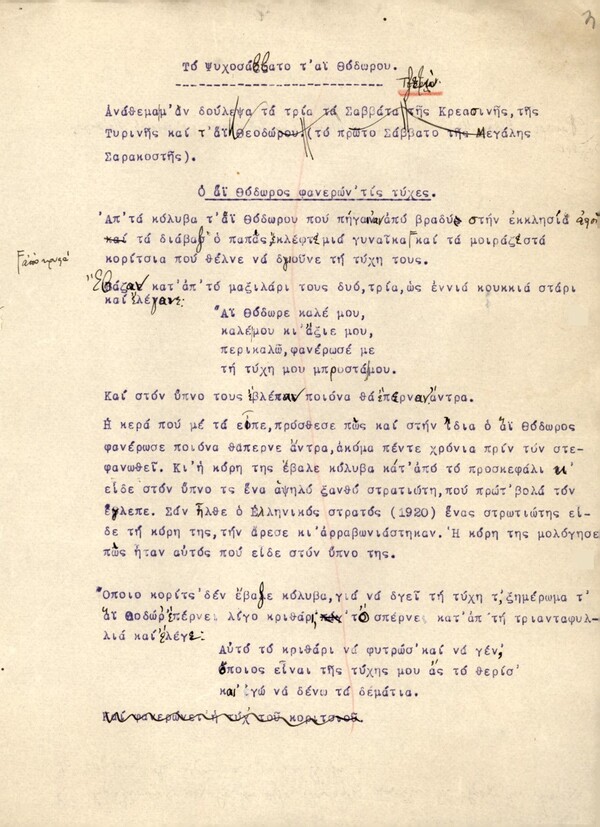 Τό Ψυχοσάββατο τ'αϊ Θόδωρου.
Ανάθεμαμ'ἄν δούλεψα τά τρία τά Σαββάτα τῆς Κρεασινῆς, τῆς
Τυρινῆς καί τ'ἄϊ Θεοδώρου (τό πρῶτο Σάββατο τῆς Μεγάλης
Σαρακοστῆς).
Ὁ ἄϊ Θόδωρος φανερών'τίς τύχες.
Ἀπ'τά κόλυβα τ'ἄϊ Θόδωρου πού πήγαιναν ἀπό βραδύς στήν ἐκκλησία ἀφοῦ
τά διάβαζ' ὁ παπᾶς, ἔκλεφτε μιά γυναῖκα καί τά μοιράζε στά
κορίτσια πού θέλνε νά δγοῦνε τή τύχη τους.
Ἔβαζαν κατ'ἀπ'τό μαξιλάρι τους δυό, τρία, ὡς ἐννιά κουκκιά στάρι
καί ἔλέγανε:
Ἄϊ Θόδωρε καλέ μου,
καλέ μου κι ἄξιε μου,
περικαλῶ, φανέρωσέ με
τή τύχη μου μπροστά μου.
Καί στόν ὕπνο τους ἔβλεπαν ποιόνα θά ἔπερναν ἄντρα.
Ἡ κερά πού μέ τά εἶπε, πρόσθεσε πώς καί στήν ἴδια ὁ ἄϊ Θόδωρος
φανέρωσε ποιόνα θἄπερνε ἄντρα, ἀκόμα πέντε χρόνια πρίν τόν στε-
φανωθεῖ. Κι'ἡ κόρη της ἔβαλε κόλυβα κάτ'ἀπό τό προσκεφάλι κι'
εἶδε στόν ὕπνο τς ἕνα ἀψηλό ξανθό στρατιώτη, πού πρώτ'βολά τόν
ἔγλεπε. Σάν ἦλθε ὁ Ἑλληνικός στρατός (1920) ἕνας στρωτιώτης εἶ-
δε τή κόρη της, τήν ἄρεσε κι'ἀρραβωνιάστηκαν. Ἡ κόρη της μολόγησε
πώς ἦταν αὐτός πού εἶδε στόν ὕπνο της.
Ὅποιο κορίτσ'δέν ἔβαζε κόλυβα, γιά νά δγεῖ τή τύχη τ', ξημέρωμα τ'
ἄϊ Θοδώρ'ἔπερνε λίγο κριθάρι, τό σπέρνε κατ'ἀπ'τή τριανταφυλ-
λιά καί ἔλεγε:
Αὐτό τό κριθάρι νά φυτρώσ'καί νά γέν',
ὅποιος εἶναι τῆς τύχης μου ἄς τό θερίσ'
κι'ἐγώ νά δένω τά δεμάτια.
Καί φανερώνετ'ἡ τύχ'τοῦ κοριτσιοῦ